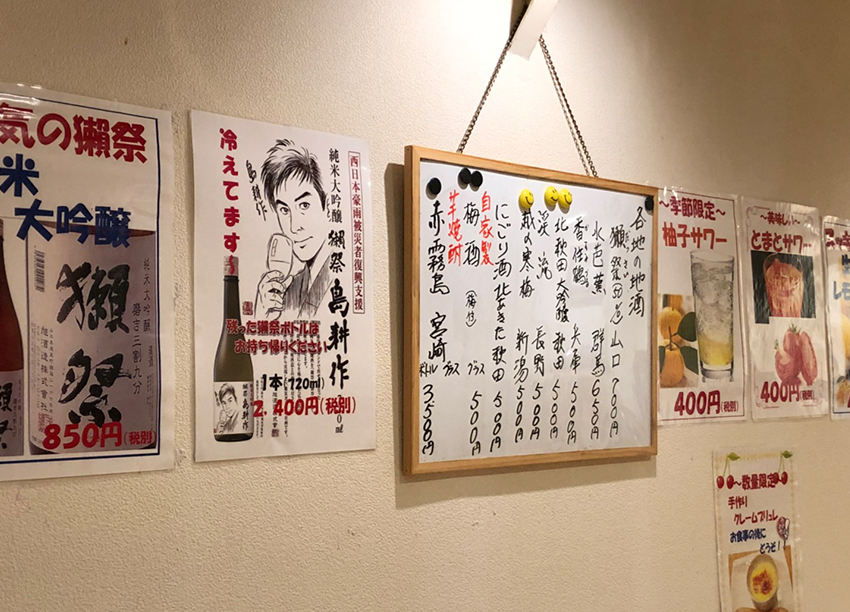 気の獺祭
米
大吟醸
獺祭
純米大吟醸
磨き三割九分
旭酒造株式会社
獺祭
850円(税別)
冷えてます!
島耕作
西日本豪雨被災者復興支援
純米大吟醸 獺祭 島耕作
残った獺祭ボトルは
お持ち帰りください
1本(720ml)
2.400円(税別)
各地の地酒
獺祭 山口 700円
水芭蕉 群馬 650円
香住鶴 兵庫 500円
北秋田大吟醸 秋田 500円
渓流 長野 500円
越の寒梅 新潟 500円
にごり酒 北あきた 秋田 500円
自家製
梅酒 グラス 500円
芋焼酎 グラス
赤霧島 宮崎 ボトル 3.500円
〜季節限定〜
柚子サワー
400円(税別)
〜美味しい〜
とまとサワー
400円(税別)
〜数量限定〜
手作り
クレームブリュレ
お食事の後に
どうぞ!